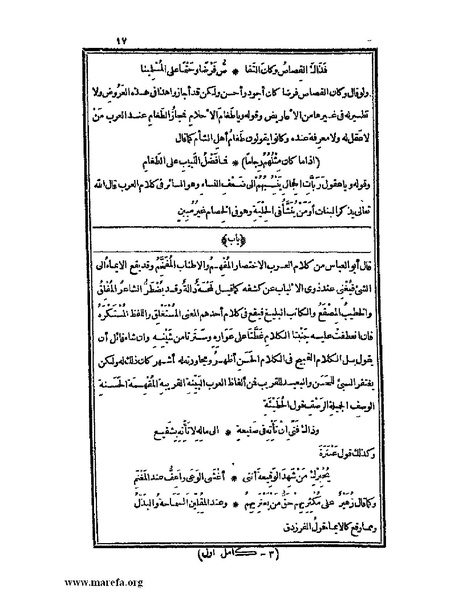 ١٧
فذاك القصاص وكان التقا * صّ فرضا وحتما على المسلمينا
ولو قال وكان القصاص فرضا كان أجود وأحسن ولكن قد أجازوا هذا فى هذه العروض ولا
نظير له فى غيرها من الأعاريض وقوله ويا طغام الأحلام فمجاز الطغام عند العرب من
لا عقل له ولا معرفة عنده وكانوا يقولون طغام أهل الشأم كما قال
(اذا ما كان مثلهم رجاما) * فما فضل اللبيب على الطغام
وقوله ويا عقول ربات الحجال ينسبهم الى ضعف النساء وهو السائر فى كلام العرب قال الله
تعالى يذكر البنات أومن ينشأ فى الحلية وهو فى الخصام غير مبين
﴿باب﴾
قال أبو العباس من كلام العرب الاختصار المفهم والاطناب المفخم وقد يقع الايماء الى
الشئ فيغنى عند ذوى الألباب عن كشفه كما قيل لمحة دالة وقد يضطر الشاعر المفلق
والخطيب المصقع والكاتب البليغ فيقع فى كلام أحدهم المعنى المستغلق واللفظ المستكره
فان انعطفت عليه جنبتا الكلام غطتا على عواره وسترتا من شينه وان شاء قائل أن
يقول بل الكلام القبيح فى الكلام الحسن أظهر ومجاورته له أشهر كان ذلك له ولكن
يغتفر السيئ للحسن والبعيد للقريب فمن ألفاظ العرب البينة القريبة المفهمة الحسنة
الوصف الجميلة الرصف قول الحطيئة
وذاك فتى ان تأته فى صنيعة * الى ماله لا تأته بشفيع
وكذلك قول عنترة
يخبرك من شهد الوقيعة أننى * أغشى الوغى وأعف عند المغنم
وكما قال زهير على مكثريهم حق من يعتريهم * وعند المقلين السماحة والبذل
ومما وقع كالايماء قول الفرزدق
(٣ - كامل اول)
www.marefa.org